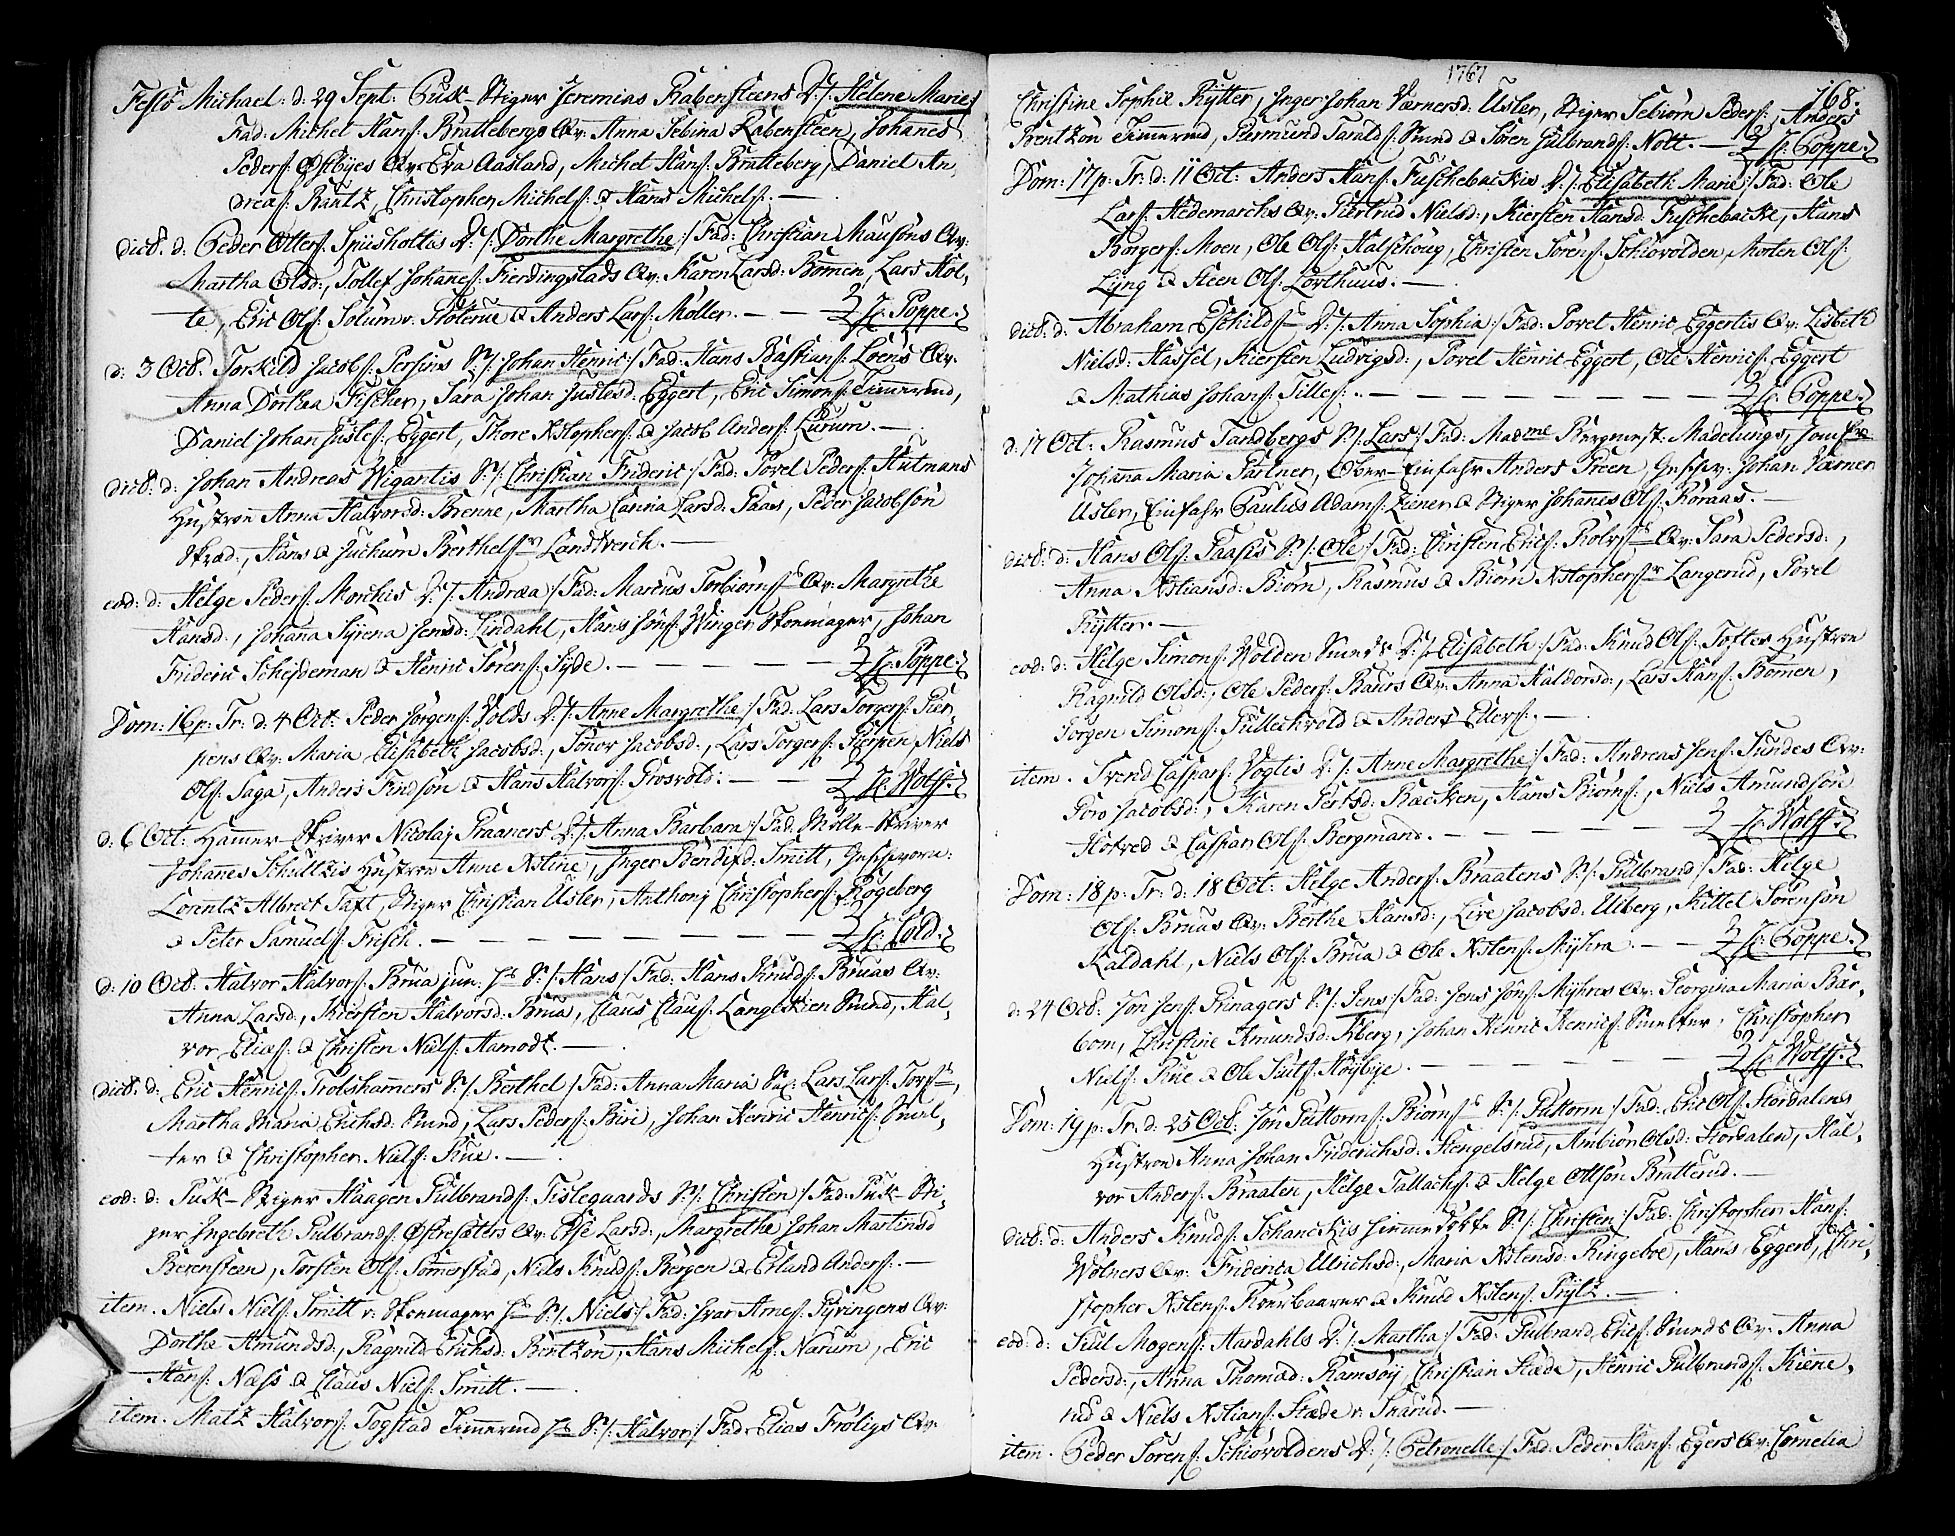 Festo Michael: d: 29 Sept: Puk-Stiger Jeremias Rabensteens D:/: Helene Marie:/
Fad: Michel Hans: Brattebergs Qv: Anna Sebina Rabensteen, Johanes
Peders: Østbÿes Qv: Eva Aasland, Michel Hans: Bratteberg, Daniel An,
dreas: Rantz, Christopher Michels: & Hans Michels:. —
dict: d: Peder Otters: D:/: Dorthe Margrethe:/ Fad: Christian Mausons Qv:
Martha Olsd:, Tollef Johanes: Fierdingstads Qv: Karen Larsd: Bömen, Lars Hol,
te, Eric Ols: Solum v: & Anders Lars: Møller. — — H: Poppe.
d: 3 Octb: Torkild Jacobs: S:/: Johan Henric:/ Fad: Hans Bastians: Loens Qv:
Anna Dorthea Fischer, Sara Johan Justesd: Eggert, Eric Simons: Timmermd,
Daniel Johan Justes: Eggert, Thore Xstophers: & Jacob Anders: Lurum. —
dict: d: Johan Andreas Wigantis S:/: Christian Frideric:/ Fad: Povel Peders: Hutmans
Hustroe Anna Halvorsd: Brenne, Martha Carina Larsd: Paas, Peder Jacobsön
Skræd:, Hans & Jochum Berthels: Landtverch. —
eod: d: Helge Peders: Morchis D:/: Andrea:/ Fad: Marcus Torbiörns: Qv: Margrethe
Hansd:, Johana Sÿrena Jensd: Lindahl, Hans Jöns: Winger Skomager, Johan
Frideric Scheideman & Henric Sørens: Sÿde. — — — — H: Poppe.
Dom: 16 p: Tr: d: 4 Oct: Peder Jörgens: Volds D:/: Anne Margrethe:/ Fad: Lars Torgers: Pur,
pens Qv: Maria Elisabeth Jacobsd:, Tonor Jacobsd:, Lars Torgers: Niels
Ols: Saga, Anders Findson & Hans Halvors: Grosvold: — — H: Wolff.
d: 6 Oct: Hamer-Skriver Nicolaj Praaners D:/: Anna Barbara:/ Fad: Mølle-Skriver
Johanes Schultzis Hustroe Anne Xstine, Inger Bendixd: Smitt, Geschworn:
Lorentz Albrect Taxt, Stiger Christian Usler, Anthonj Christophers: Rögeberg
& Peter Samuels: Frisch. — — — — — — H: Told.
d: 10 Octb: Halvor Halvors: Brua jun: S:/: Hans:/ Fad: Hans Knuds: Bruas Qv:
Anna Larsd:, Kiersten Halvorsd: Brua, Claus Claus: Langeskien Smed, Hal,
vor Elias: & Christen Niels: Hamodt. —
dict: d: Eric Henrics: Trolshamers S:/: Berthel:/ Fad: Anna Maria Sal: Lars Lars:
Martha Maria Erichsd: Smed, Lars Peders: Biri, Johan Henric Henrics: Smel,
ter & Christopher Niels: Rue. —
eod: d: Puk-Stiger Haagen Gulbrands: Tislegaards S:/: Christen:/ Fad: Puk-Sti,
ger Ingebreth Gulbrands: Østresæters Qv: Else Larsd:, Margrethe Johan Martinsd
Berensteen, Torsten Ols: Somerstad, Niels Knuds: Bergen & Erland Anders: —
item. Niels Niels: Smitt v: Skomager S:/: Niels:/ Fad: Ivar Arnes: Gÿringens Qv:
Dorthe Amundsd:, Ragnild Erichsd: Bentzon, Hans Michels: Narum, Eric
Hans: Næss & Claus Niels: Smitt. —
item. Matz Halvors: Fogstad Timmermd S:/: Halvor:/ Fad: Elias Fröligs Qv:
1767
168.
Christine Sophie Rÿtter, Inger Johan Værnersd: Usler, Stiger Sebiörn Peders:, Anders
Bentzon Timmermd, Germund Taralds: Smed & Sören Gulbrands: Nott. — H: Poppe.
Dom: 17 p: Tr: d: 11 Oct: Anders Hans: Fuschebackis D:/: Elisabeth Marie:/ Fad: Ole
Lars: Hedemarchs Qv: Giertrud Nielsd:, Kiersten Hansd: Fuschebacke, Hans
Borgers: Moen, Ole Ols: Kalschoug, Christen Sörens: Schiovolden, Morten Ols:
Lÿng & Steen Ols: Lorthuus. —
dict: d: Abraham Eschilds: D:/: Anna Sophia:/ Fad: Povel Henric Eggertis Qv: Lisbeth
Nielsd: Hassel, Kiersten Ludvigsd:, Povel Henric Eggert, Ole Henrics: Eggert
& Mathias Johans: Tilles: — — — — — — H: Poppe.
d: 17 Oct: Rasmus Tandbergs S:/: Lars:/ Fad: Madme Bergmest: Madelungs, Jomfru
Johana Maria Partner, Ober-Einfahr Anders Green, Geschw: Johan Værner
Usler, Einfahr Paulus Adams: Ziener & Stiger Johanes Ols: Horaas. —
dict: d: Hans Ols: Gaasis S:/: Ole:/ Fad: Christen Erics: Rolvs: Qv: Sara Pedersd:,
Anna Xstiansd: Biörn, Rasmus & Biörn Xstophers: Langerud, Povel
Rÿtter. —
eod: d: Helge Simons: Wolden Smeds D:/: Elisabeth:/ Fad: Knud Ols: Softes Hustroe
Ragnild Olsd:, Ole Peders: Baurs Qv: Anna Haldorsd:, Lars Hans: Bömen,
Jorgen Simons: Gulleckvold & Anders Eders: —
item. Svend Caspars: Vogtis D:/: Anne Margrethe:/ Fad: Andreas Jens: Sundes Qv:
Goro Jacobsd:, Karen Persd: Backen, Hans Biörns:, Niels Amundsön
Hotved & Caspar Ols: Bergmand. — — — — — H: Wolff.
Dom: 18 p: Tr: d: 18 Oct: Helge Anders: Braatens S:/: Gulbrand:/ Fad: Helge
Ols: Bruas Qv: Berthe Hansd:, Live Jacobsd: Ulberg, Kittel Sörensön
Kaldahl, Niels Ols: Brua & Ole Xstens: Mÿhra. — — H: Poppe.
d: 24 Octb: Jon Jens: Prinagers S:/: Jens:/ Fad: Jens Jöns: Mÿhres Qv: Georgina Maria Bar,
bom, Christine Amundsd: Aberg, Johan Henric Henrics: Smelter, Christopher
Niels: Rue & Ole Juuls: Höÿbÿe. — — — — H: Wolff.
Dom: 19 p: Tr: d: 25 Octb: Jön Guttorms: Biörns: S:/: Guttorm:/ Fad: Eric Ols: Stordalens
Hustroe Anna Johan Friderichsd: Stengelsrud, Ambiör Olsd: Stordalen, Hal,
vor Anders: Braaten, Helge Tallachs: & Helge Olsön Bratterud. —
dict: d: Anders Knuds: Schanckis S:/: Christen:/ Fad: Christopher Hans:
Wölners Qv: Friderica Ulrichsd:, Maria Xstensd: Ringeboe, Hans Eggert, Chri,
stopher Xstens: & Knud Xstens: Gryte. —
eod: d: Juul Mogens: Aardahls D:/: Martha:/ Fad: Gulbrand Erics: Smeds Qv: Anna
Pedersd:, Anna Thomæd: Ramsöÿ, Christian Stæde, Henric Gulbrands: Kiene,
rud & Niels Xstians: Stæde v: Snarud. —
item. Peder Sörens: Schiövoldens D:/: Petronelle:/ Fad: Peder Hans: Egers Qv: Cornelia